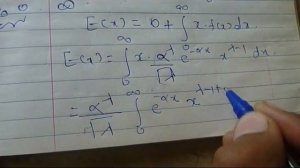 E(x) = 0 + ∫₀^∞ x. f(x) dx.
E(x) = ∫₀^∞ x. α^λ/Γλ e^-αx x^λ-1 dx
= α^λ/Γλ ∫₀^∞ e^-αx x^λ-1+